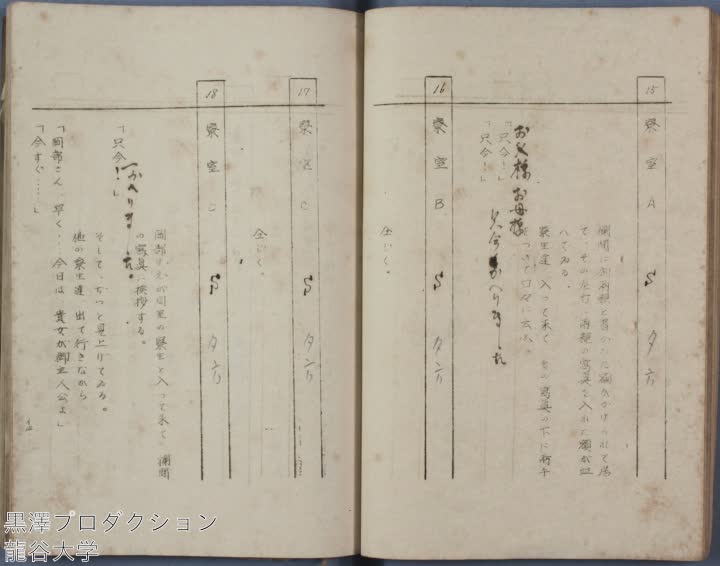 15
寮室A S 夕方
欄間に
て、その左右に両親の写真を入れた額が並
べてある。
寮生達、入って来て、その写真の下に
口々に云ふ。
お父様お母様
只今かへりました
「只今！」
「只今！」
16
寮室B S 夕方
全じく。
17
寮室C S 夕方
全じく。
18
寮室D S 夕方
岡部さえが同室の寮生と入って来て、欄間
の写真に挨拶する。
「只今！」
かへりました。
そして、ぢっと見上げてゐる。
他の寮生達、出て行きながら
「岡部さん、早く……今日は、貴女が御主人公よ」
「今すぐ……」
黒澤プロダクション
龍谷大学